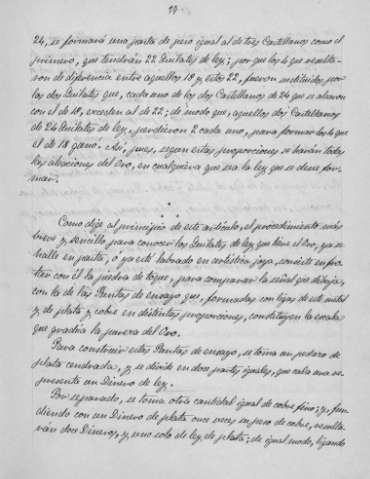 24, se formará una pasta de peso igual al de tres Castellanos como el
primero, que tendrán 22 Quilates de ley; por que los 4 que resulta-
ron de diferencia entre aquellos 18 y estos 22, fueron restituidos por
los dos Quilates que, cada uno de los dos Castellanos de 24 que se alearon
con el de 18, exceden al de 22; de modo que, aquellos dos Castellanos
de 24 Quilates de ley, perdieron 2 cada uno, para formar los 4 que
el de 18 ganó. Así, pues, según estas proporciones se harán todas
las aleaciones del Oro, en cualquiera que sea la ley que se desee for-
mar.
Como dije al principio de este artículo, el procedimiento más
breve y sencillo para conocer los Quilates de ley que tiene el Oro, ya se
halle en pasta, ó ya esté labrado en artística joya, consiste en fro-
tar con él la piedra de toque, para comparar la señal que dibuja,
con la de las Puntas de ensayo que, formadas con ligas de este metal
y de plata y cobre en distintas proporciones, constituyen la escala
que gradúa la pureza del Oro.
Para construir estas Puntas de ensayo, se toma un pedazo de
plata cendrada, y se divide en doce partes iguales, que cada una re-
presente un Dinero de ley.
Por separado, se toma otra cantidad igual de cobre fino; y, fun-
diendo con un Dinero de plata once veces su peso de cobre, resulta-
rán doce Dineros, y uno solo de ley de plata; de igual modo, ligando